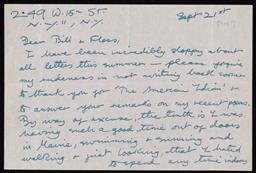 249 W. 15 - ST.
N. Y. 11, N.Y.
Sept 21st
Dear Bill & Floss,
I have been incredibly sloppy about
all letters this summer — please forgive
my rudeness in not writing back sooner
to thank you for 'The American Idiom' & to
to answer your remarks on my recent poems.
By way of excuse, the truth is I was
having such a good time out of doors
in Maine, swimming & running and
walking & just looking, that I hated
to spend any time indoors